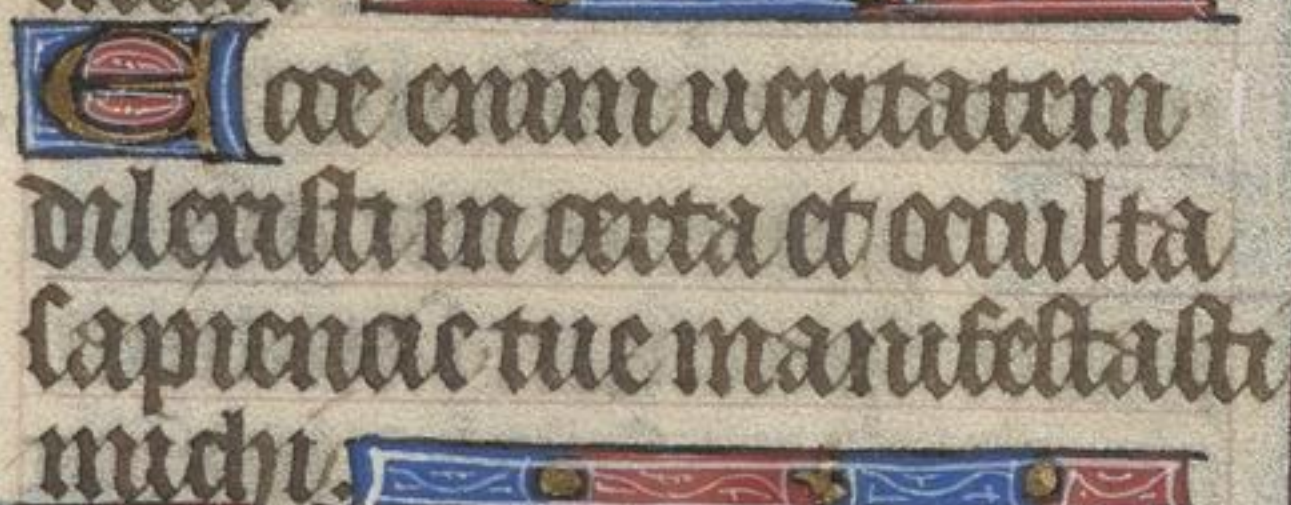 Ecce enim ueritatem
dilexisti in certa et occulta
sapiencie tue manifestasti
michi.